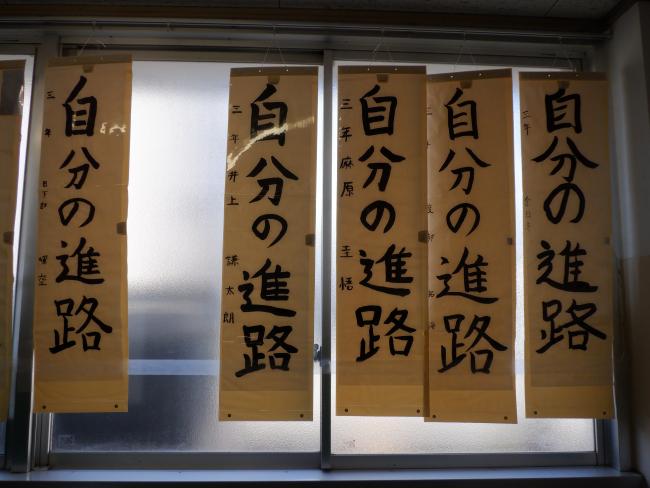 自分の進路
三年
自分の進路
三年井上謙太朗
自分の進路
三年麻原圭悟
自分の進路
自分の進路
三年